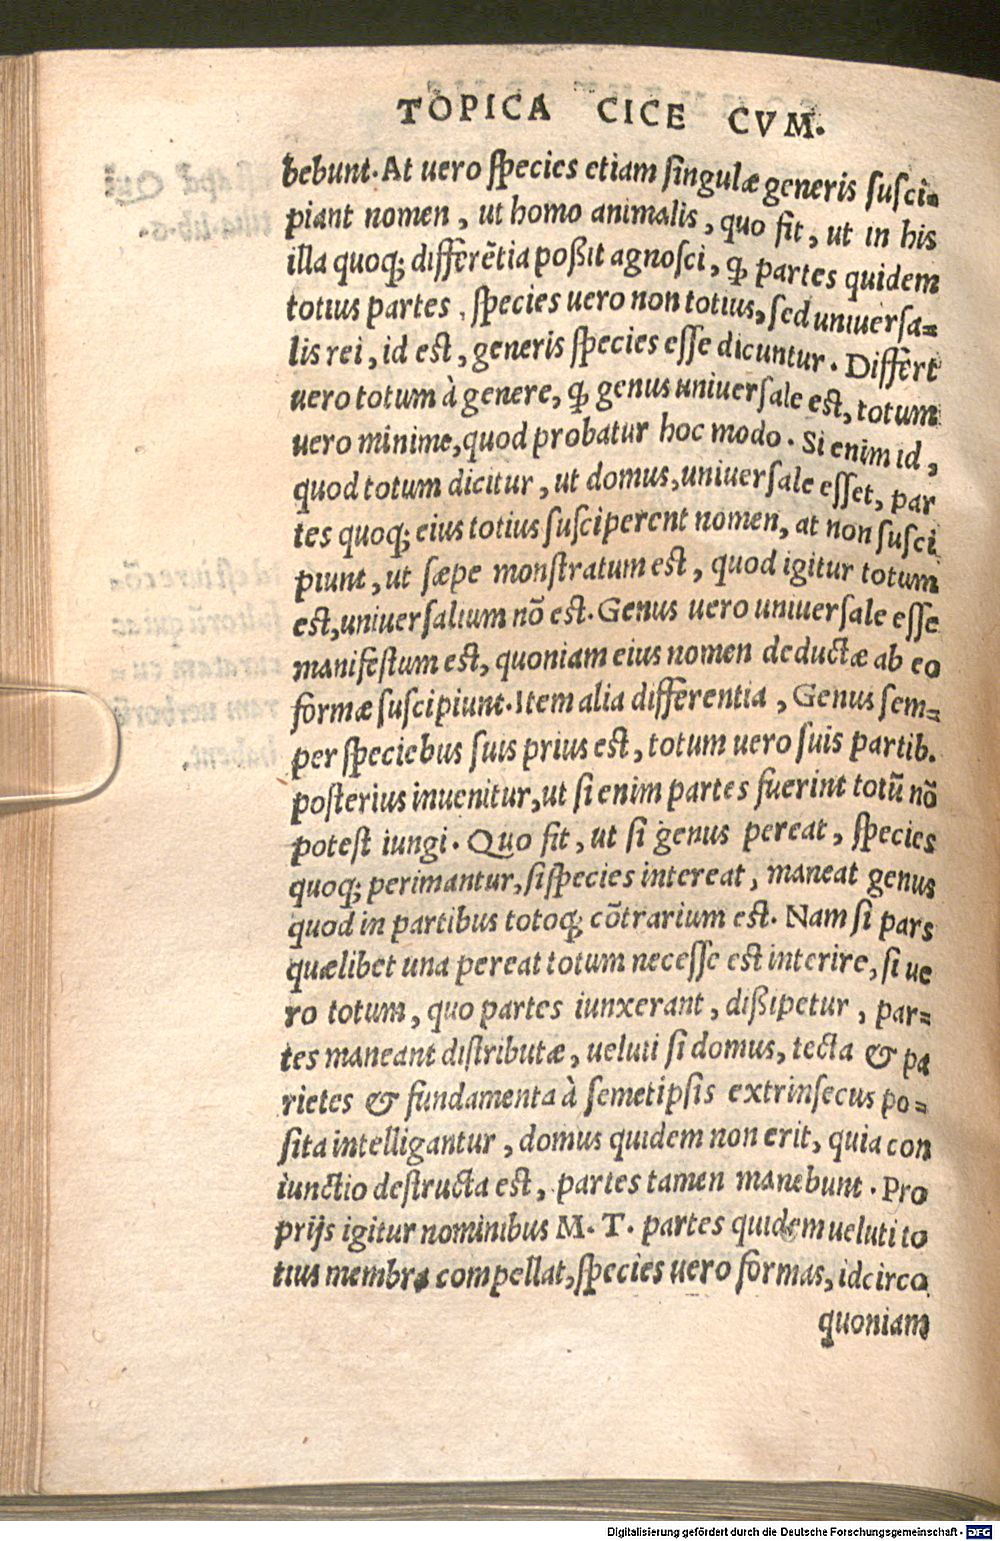 TOPICA CICE CVM.
bebunt. At uero species etiam singulæ generis susci-
piant nomen, ut homo animalis, quo fit, ut in his
illa quoq; differẽtia poßit agnosci, ꝙ partes quidem
totius partes, species uero non totius, sed uniuersa-
lis rei, id est, generis species esse dicuntur. Differt
uero totum à genere, ꝙ genus uniuersale est, totum
uero minime, quod probatur hoc modo. Si enim id,
quod totum dicitur, ut domus, uniuersale esset, par
tes quoq; eius totius susciperent nomen, at non susci
piunt, ut sæpe monstratum est, quod igitur totum
est, uniuersalium nõ est. Genus uero uniuersale esse
manifestum est, quoniam eius nomen deductæ ab eo
formæ suscipiunt. Item alia differentia, Genus sem-
per speciebus suis prius est, totum uero suis partib.
posterius inuenitur, ut si enim partes fuerint totũ nõ
potest iungi. Quo fit, ut si genus pereat, species
quoq; perimantur, si species intereat, maneat genus
quod in partibus totoq; cõtrarium est. Nam si pars
quælibet una pereat totum necesse est interire, si ue
ro totum, quo partes iunxerant, dißipetur, par-
tes maneant distributæ, ueluti si domus, tecta & pa
rietes & fundamenta à semetipsis extrinsecus po-
sita intelligantur, domus quidem non erit, quia con
iunctio destructa est, partes tamen manebunt. Pro
prijs igitur nominibus M. T. partes quidem ueluti to
tius membra compellat, species uero formas, idcirco
quoniam
Digitalisierung gefördert durch die Deutsche Forschungsgemeinschaft - DFG